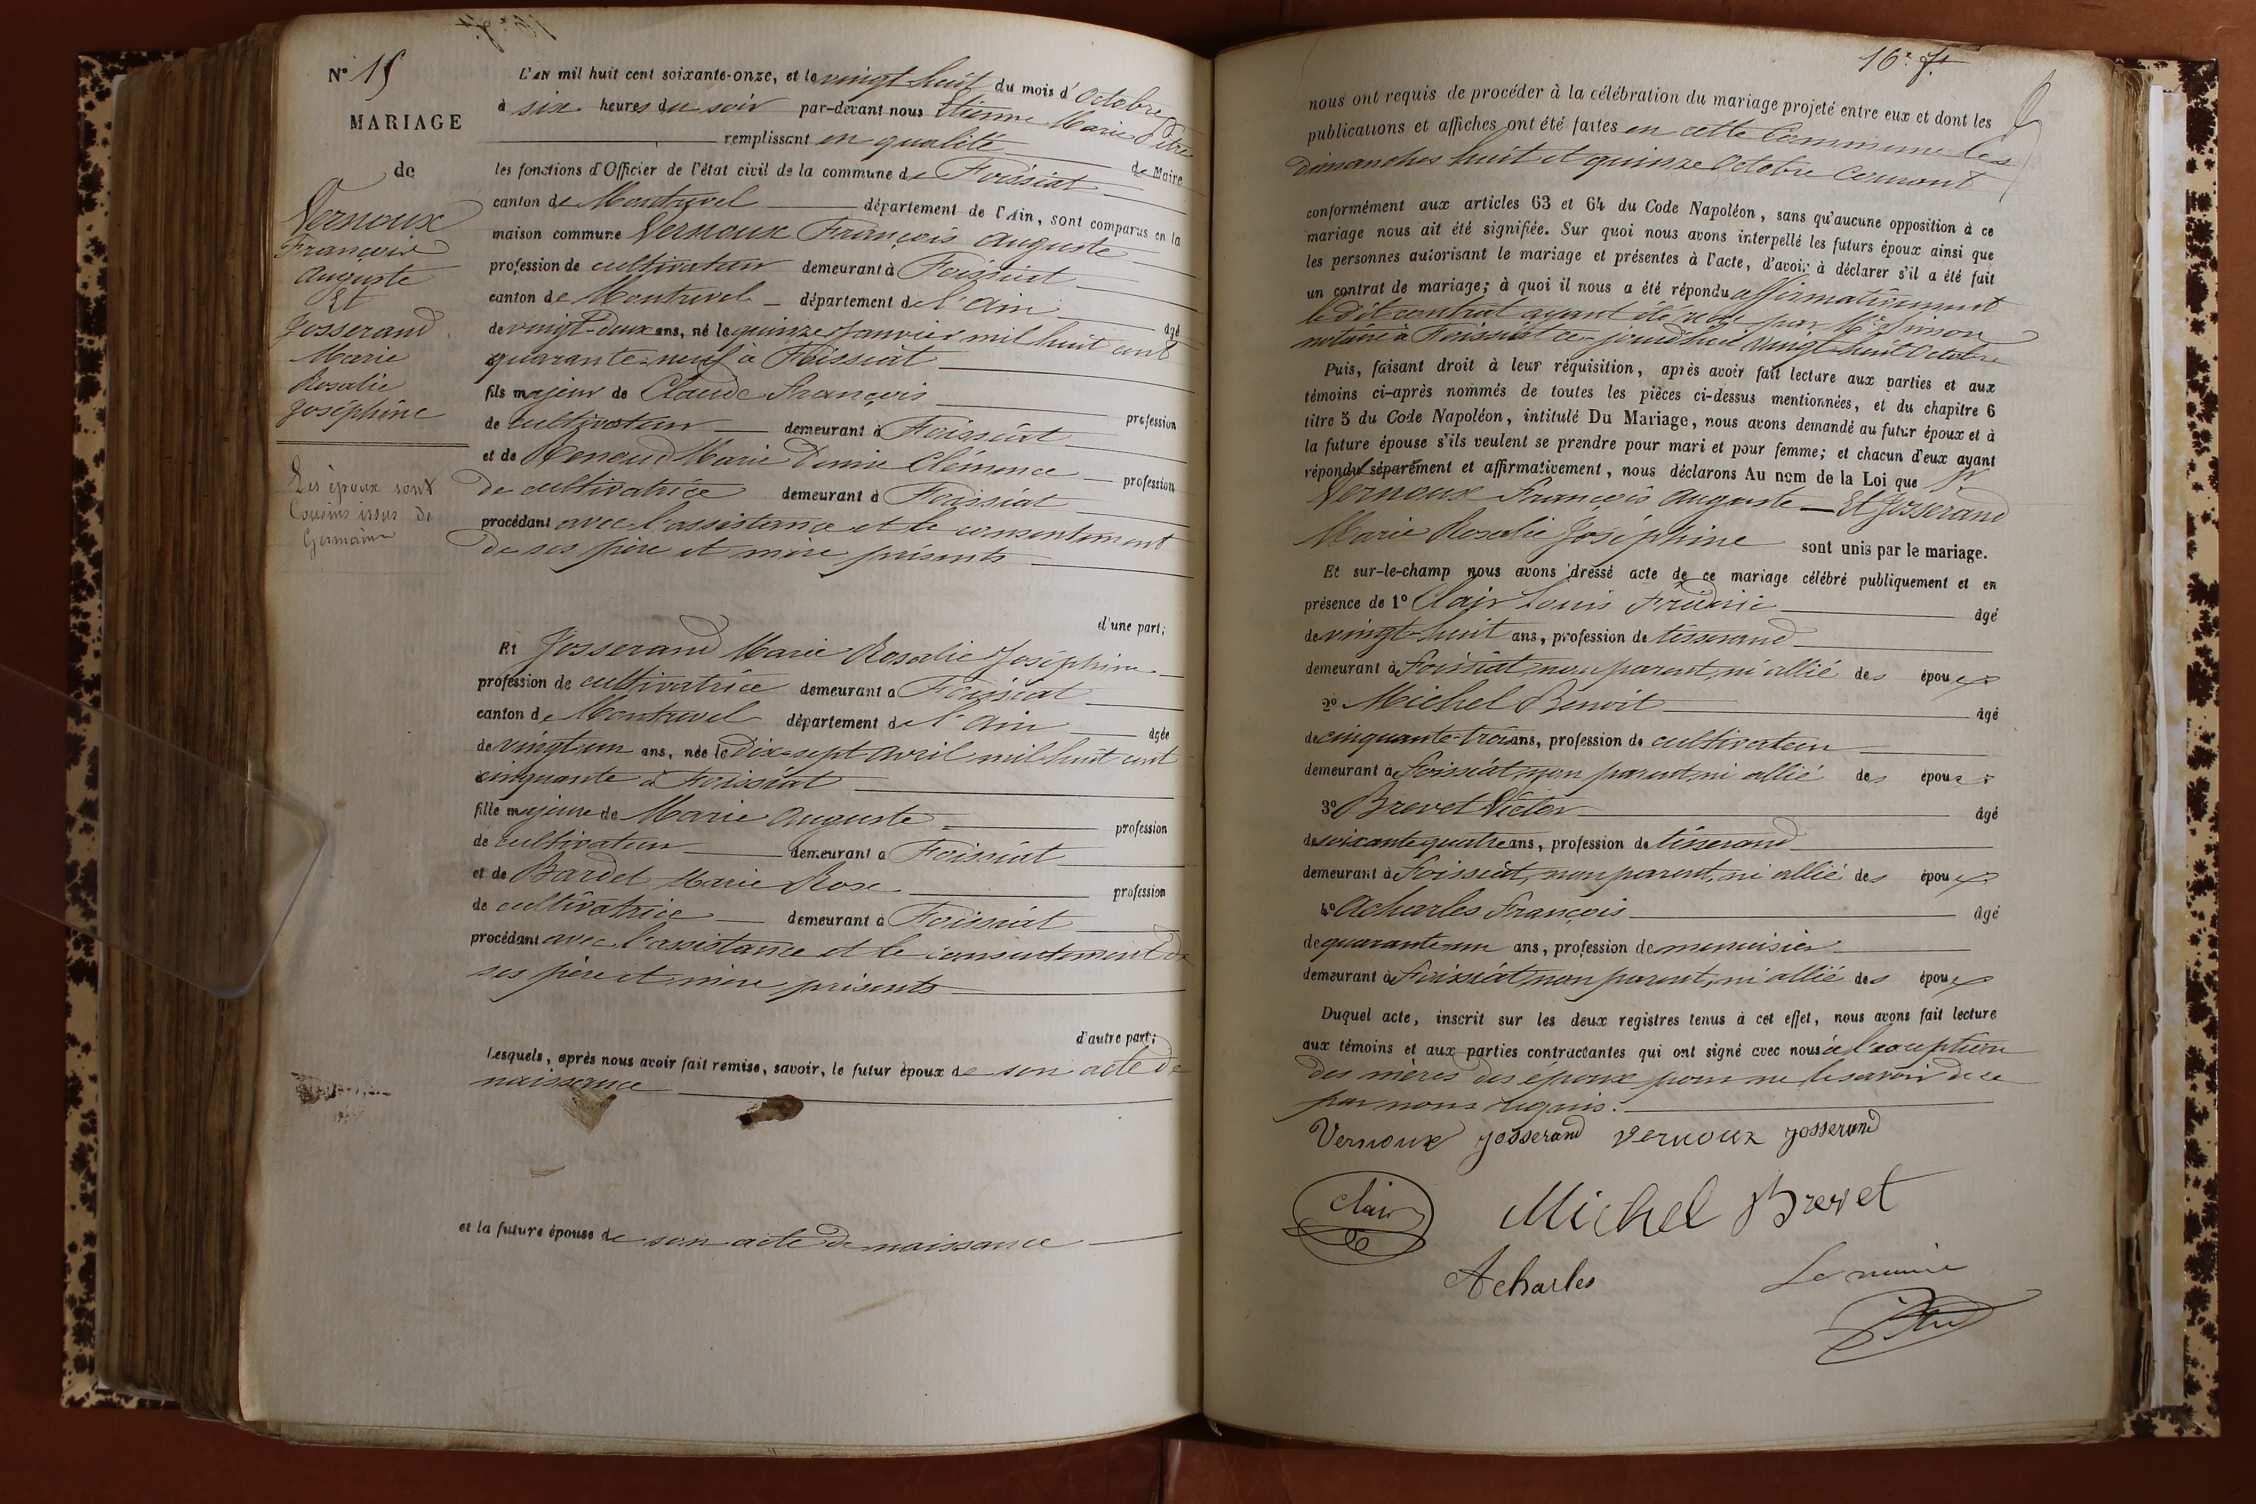 N° 15
MARIAGE
de
Vernoux
François
Auguste
Et
Josserand
Marie
Rosalie
Joséphine
Les époux sont
Cousins issus de
Germains
L'AN mil huit cent soixante-onze, et le vingt huit du mois d'Octobre
à six heures du soir par-devant nous Etienne Marie Pitre
remplissant en qualité de Maire
les fonctions d'Officier de l'état civil de la commune de Foissiat
canton de Montrevel département de l'Ain, sont comparus en la
maison commune Vernoux François Auguste
profession de cultivateur demeurant à Foissiat
canton de Montrevel département de l'Ain âgé
de vingt-deux ans, né le quinze Janvier mil huit cent
quarante-neuf à Foissiat
fils majeur de Claude François profession
de cultivateur demeurant à Foissiat
et de Renaud Marie Denise Clémence profession
de cultivatrice demeurant à Foissiat
procédant avec l'assistance et le consentement
de ses père et mère présents
d'une part;
Et Josserand Marie Rosalie Joséphine
profession de cultivatrice demeurant à Foissiat
canton de Montrevel département de l'Ain âgée
de vingt un ans, née le dix-sept avril mil huit cent
cinquante à Foissiat
fille majeure de Marie Auguste profession
de cultivateur demeurant à Foissiat
et de Bardet Marie Rose profession
de cultivatrice demeurant à Foissiat
procédant avec l'assistance et le consentement de
ses père et mère présents
d'autre part;
Lesquels, après nous avoir fait remise, savoir, le futur époux de son acte de
naissance
et la future épouse de son acte de naissance
16e f.
nous ont requis de procéder à la célébration du mariage projeté entre eux et dont les
publications et affiches ont été faites en cette Commune les
dimanches huit et quinze Octobre courant
conformément aux articles 63 et 64 du Code Napoléon, sans qu'aucune opposition à ce
mariage nous ait été signifiée. Sur quoi nous avons interpellé les futurs époux ainsi que
les personnes autorisant le mariage et présentes à l'acte, d'avoir à déclarer s'il a été fait
un contrat de mariage; à quoi il nous a été répondu affirmativement
le dit contrat ayant été reçu par Me Simon
notaire à Foissiat ce jourd'hui vingt huit Octobre
Puis, faisant droit à leur réquisition, après avoir fait lecture aux parties et aux
témoins ci-après nommés de toutes les pièces ci-dessus mentionnées, et du chapitre 6
titre 5 du Code Napoléon, intitulé Du Mariage, nous avons demandé au futur époux et à
la future épouse s'ils veulent se prendre pour mari et pour femme; et chacun d'eux ayant
répondu séparément et affirmativement, nous déclarons Au nom de la Loi que
Vernoux François Auguste Et Josserand
Marie Rosalie Joséphine sont unis par le mariage.
Et sur-le-champ nous avons dressé acte de ce mariage célébré publiquement et en
présence de 1° Clair Louis Frédéric âgé
de vingt-huit ans, profession de tisserand
demeurant à Foissiat, non parent, ni allié des époux
2° Michel Benoit âgé
de cinquante-trois ans, profession de cultivateur
demeurant à Foissiat, non parent, ni allié des époux
3° Brevet Victor âgé
de soixante quatre ans, profession de tisserand
demeurant à Foissiat, non parent, ni allié des époux
4° Acharles François âgé
de quarante un ans, profession de menuisier
demeurant à Foissiat, non parent, ni allié des époux
Duquel acte, inscrit sur les deux registres tenus à cet effet, nous avons fait lecture
aux témoins et aux parties contractantes qui ont signé avec nous à l'exception
des mères des époux pour ne le savoir de ce
par nous requis.
Vernoux Josserand Vernoux Josserand
Clair Michel Brevet
Acharles Le maire